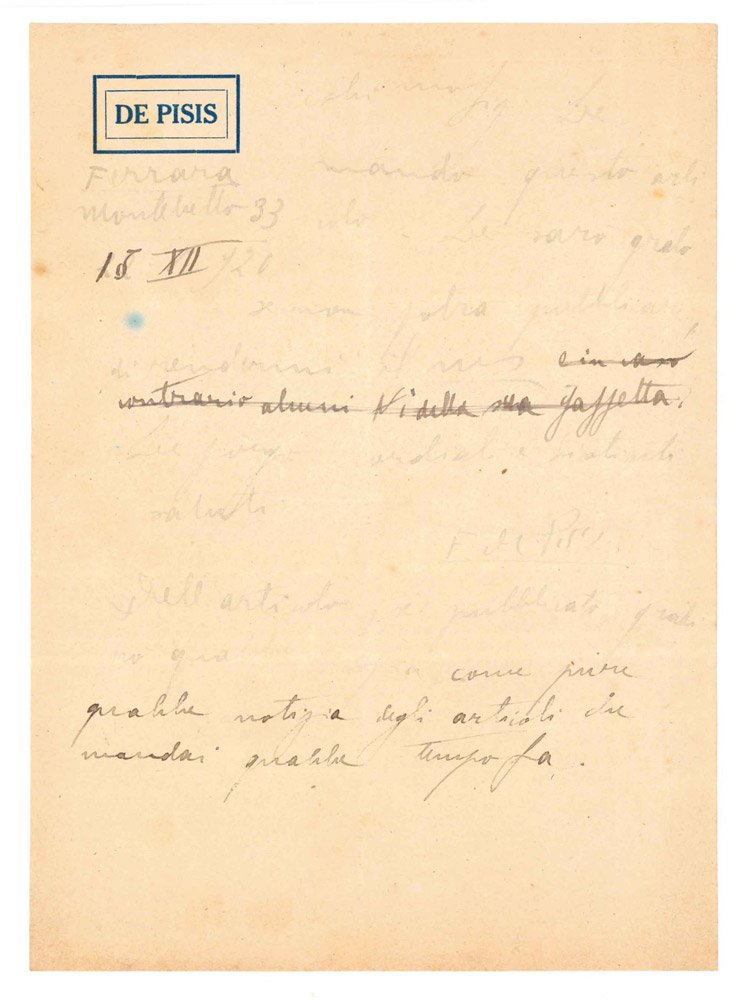 DE PISIS
Le
Ferrara mando questo arti
Montebello 33 colo - Le sarò grato
18 XII 920
se non potrà pubblicarlo
di rendermi il ms e in caso
contrario alcuni Ni della sua Gazzetta.
Le porgo cordiali e distinti
saluti
F de Pisis
Dell'articolo, se pubblicato gradi
come pure
qualche notizia degli articoli che
mandai qualche tempo fa.